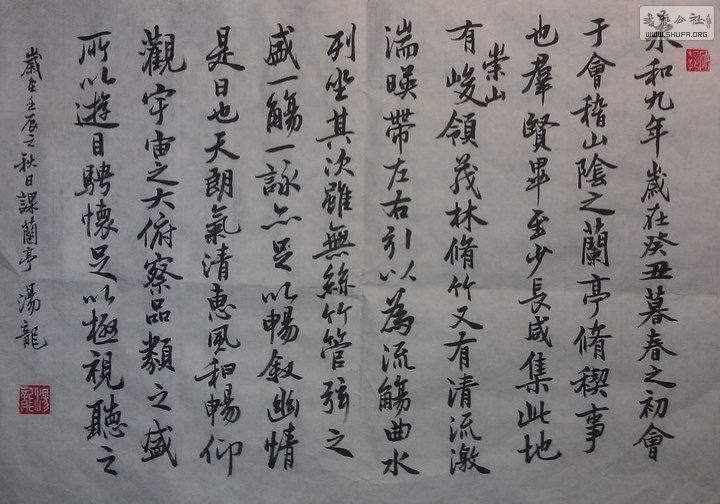 永和九年歲在癸丑暮春之初會
于會稽山陰之蘭亭脩稧事
也羣賢畢至少長咸集此地
有崇山峻領茂林脩竹又有清流激
湍暎帶左右引以為流觴曲水
列坐其次雖無絲竹管弦之
盛一觴一詠亦足以暢敘幽情
是日也天朗氣清惠風和暢仰
觀宇宙之大俯察品類之盛
所以遊目騁懷足以極視聽之
歲在壬辰之秋日課蘭亭 湯龍
湯龍
書法公社
WWW.SHUFA.ORG